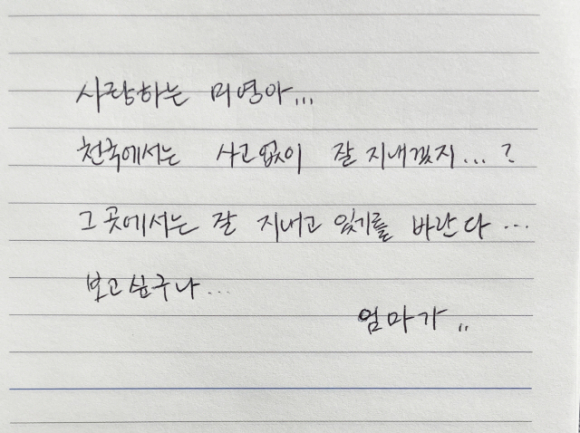 사랑하는 미영아...
천국에서는 사고없이 잘 지내겠지...?
그 곳에서는 잘 지내고 있기를 바란다...
보고싶구나...
엄마가..